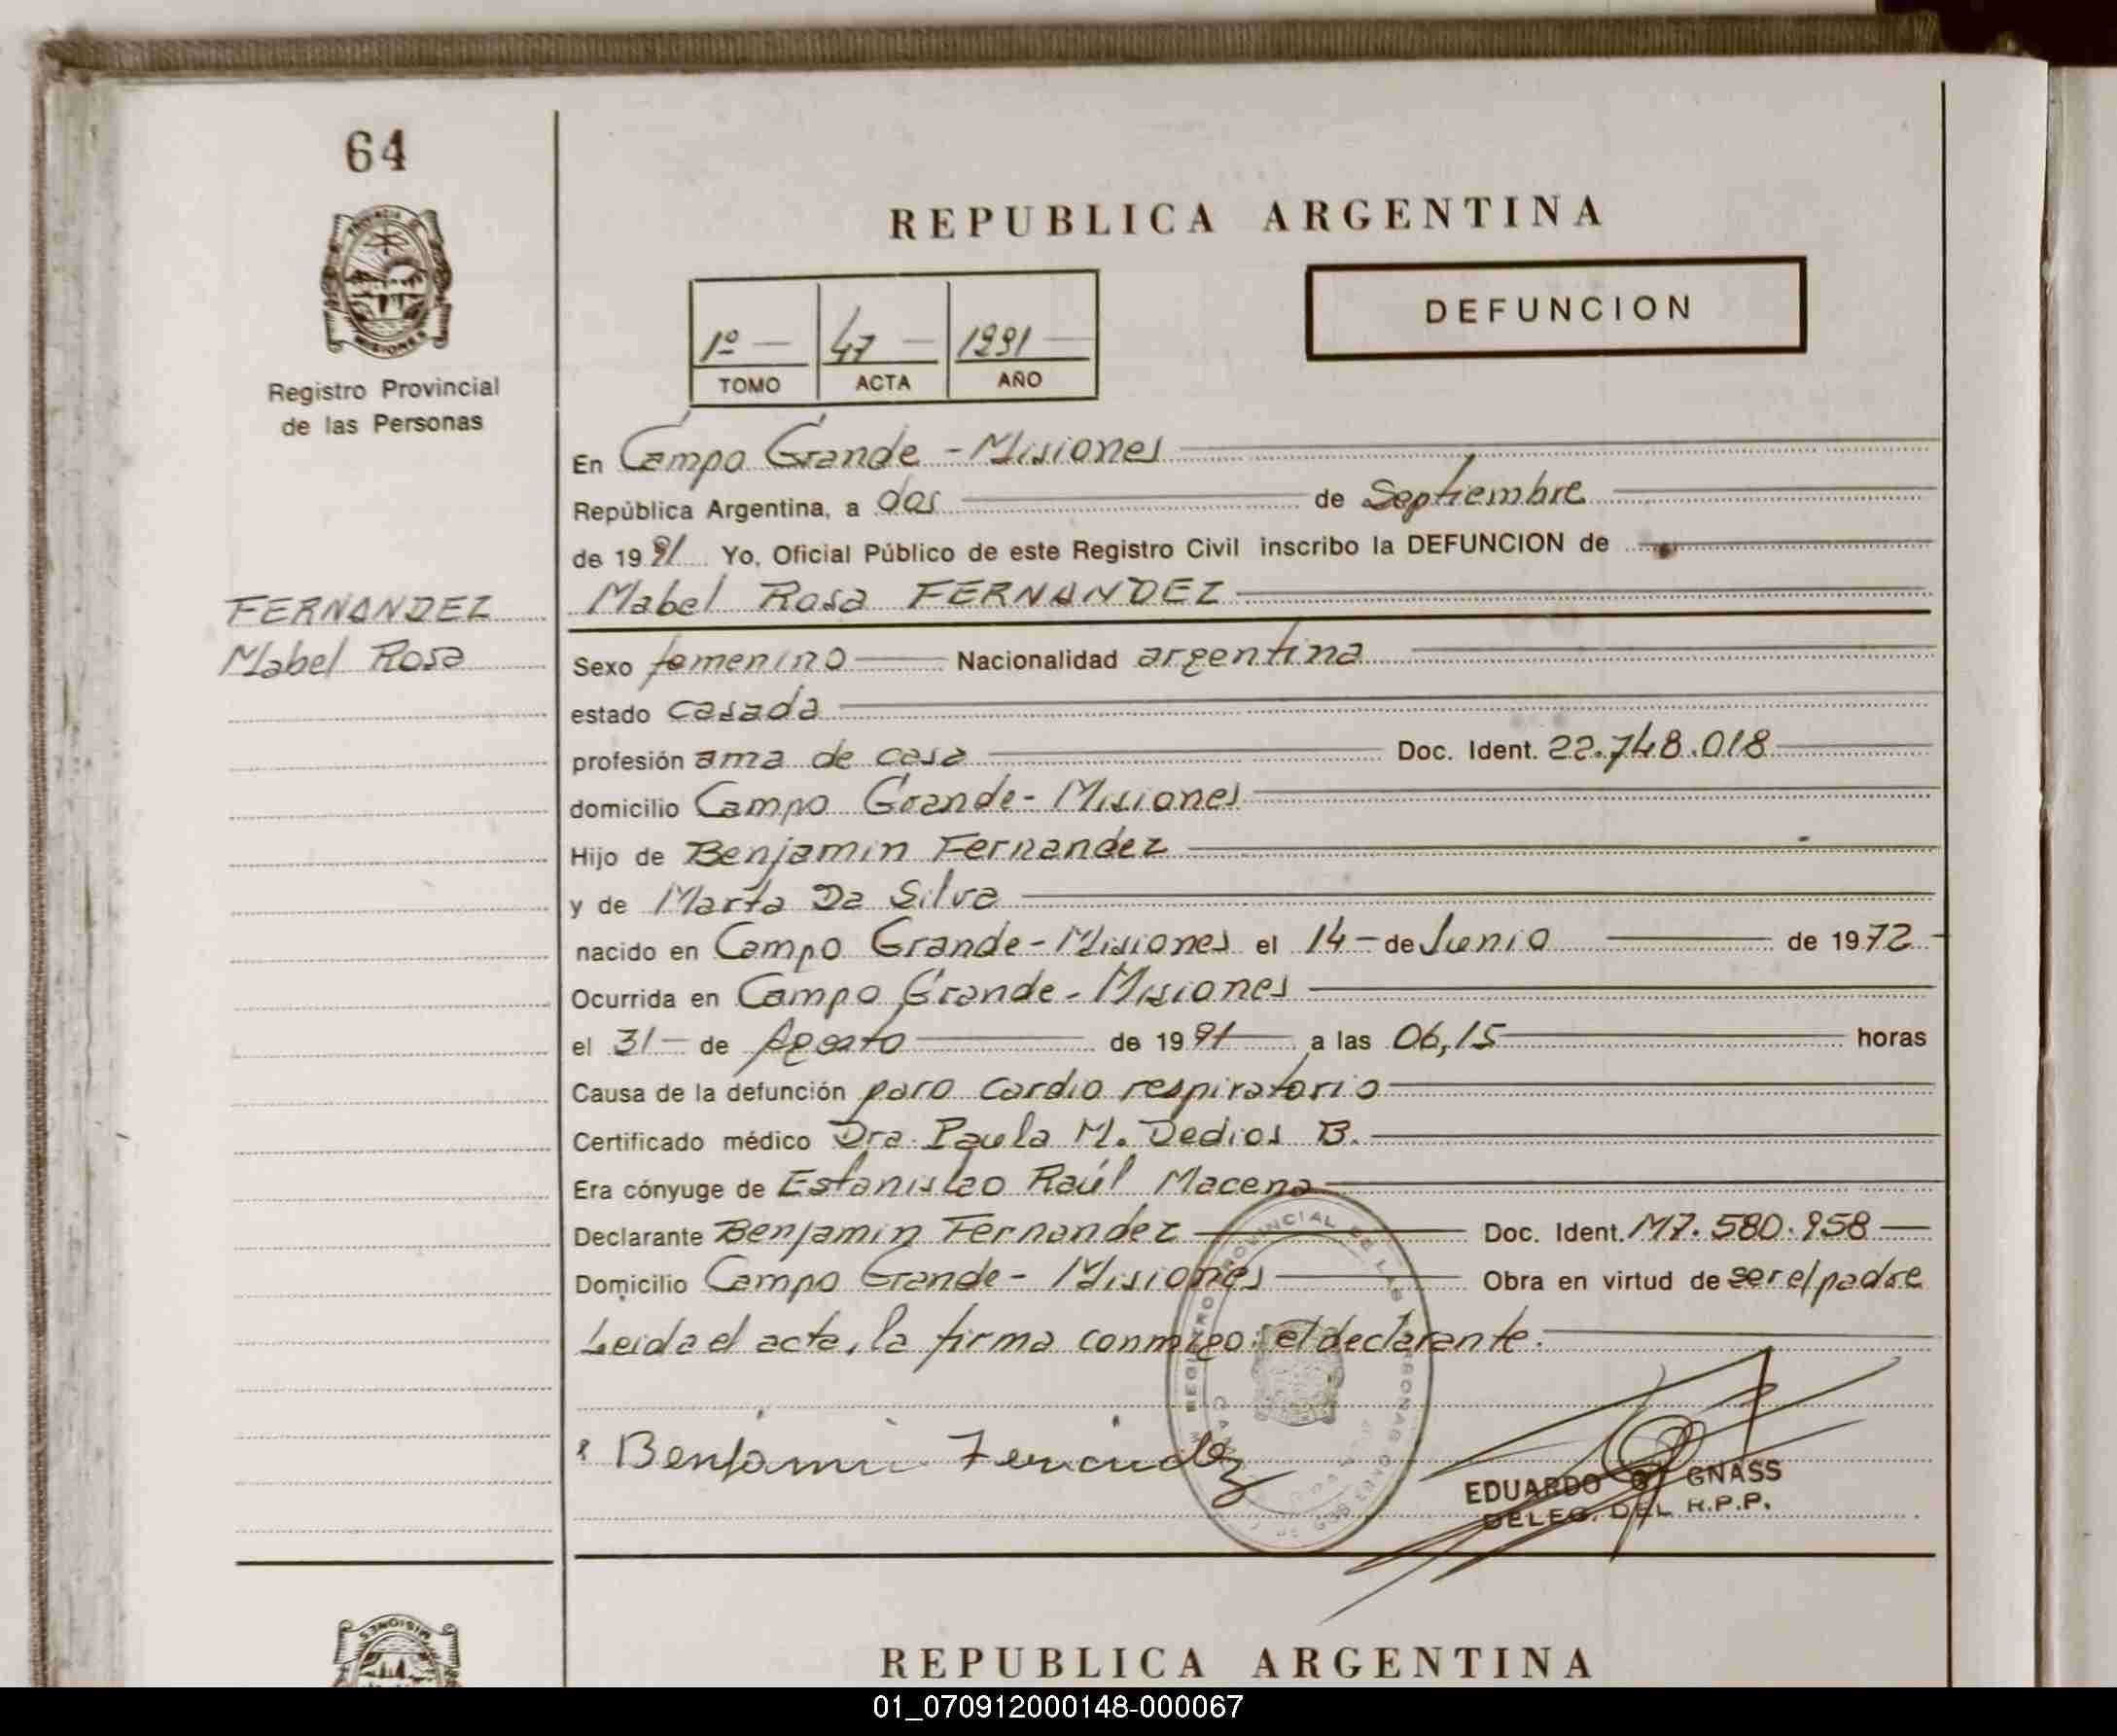 64
PROVINCIA DE
MISIONES
Registro Provincial
de las Personas
FERNANDEZ
Mabel Rosa
REPUBLICA ARGENTINA
1º 47 1991
TOMO ACTA AÑO
DEFUNCION
En Campo Grande - Misiones
República Argentina, a dos de Septiembre
de 1991 Yo, Oficial Público de este Registro Civil inscribo la DEFUNCION de
Mabel Rosa FERNANDEZ
Sexo femenino Nacionalidad argentina
estado casada
profesión ama de casa Doc. Ident. 22.748.018
domicilio Campo Grande - Misiones
Hijo de Benjamin Fernandez
y de Marta Da Silva
nacido en Campo Grande - Misiones el 14 - de Junio de 1972
Ocurrida en Campo Grande - Misiones
el 31 - de Agosto de 1991 a las 06,15 horas
Causa de la defunción paro cardio respiratorio
Certificado médico Dra. Paula M. Dedios B.
Era cónyuge de Estanislao Raúl Macena
Declarante Benjamin Fernandez Doc. Ident. M7.580.958
Domicilio Campo Grande - Misiones Obra en virtud de ser el padre
Leida el acta, la firma conmigo: el declarante.
REGISTRO PROVINCIAL DE LAS PERSONAS
Benjamin Fernandez
EDUARDO GNASS
DELEG. DEL R.P.P.
MISIONES
REPUBLICA ARGENTINA
01_070912000148-000067